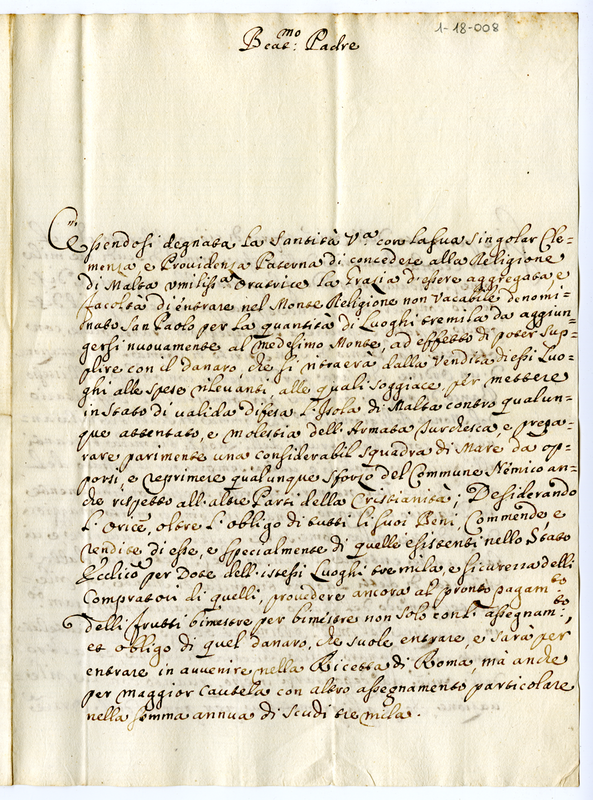 1-18-008
Beat.mo Padre
Essendosi degnata la Santità V.a con la sua singolar Cle=
menza, e Providenza Paterna di concedere alla Religione
di Malta umiliss.a Oratrice la Grazia d'essere aggregata, e
facoltà di entrare nel Monte Religione non vacabile denomi=
nato San Paolo per la quantità di Luoghi tremila da aggiun=
gersi nuovamente al medesimo Monte, ad effetto di poter sup=
plire con il danaro, che si ritraerà dalla vendita di essi Luo=
ghi alle spese rilevanti, alle quali soggiace, per mettere
in stato di valida difesa l'Isola di Malta contro qualun=
que attentato, e molestia dell'Armata Turchesca, e prepa=
rare parimente una considerabil squadra di Mare da op=
porsi, e reprimere qualunque sforzo del Commune Nemico an=
che rispetto all'altre Parti della Cristianità; Desiderando
l'Orice, oltre l'obligo di tutti li suoi Beni, Commende, e
rendite di esse, e specialmente di quelle esistenti nello Stato
Eccl.ico per Dote dell'istessi Luoghi tre mila, e sicurezza delli
Compratori di quelli, provedere ancora al pronto pagam.to
delli frutti bimestre per bimestre non solo con li assegnam.ti,
et obligo di quel danaro, che suole entrare, e sarà per
entrare in avvenire nella Ricetta di Roma, mà anche
per maggior Cautela con altro assegnamento particolare
nella somma annua di scudi tre mila.